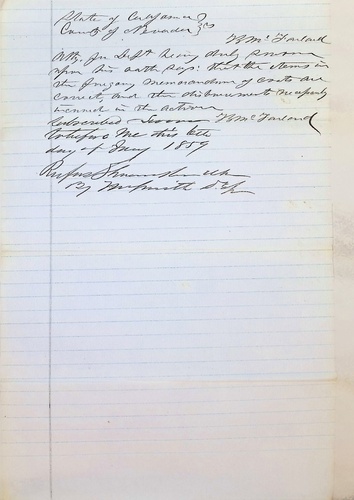 State of California } ss
County of Nevada }
W McFarland
Atty for Deft being duly sworn
upon his oath says: that the items in
the foregoing memorandum of costs are
correct, and the disbursements necessarily
incurred in the action
subscribed Sworn W McFarland
to before me this 6th
day of May 1859
Rufus Shoemaker Clk
By